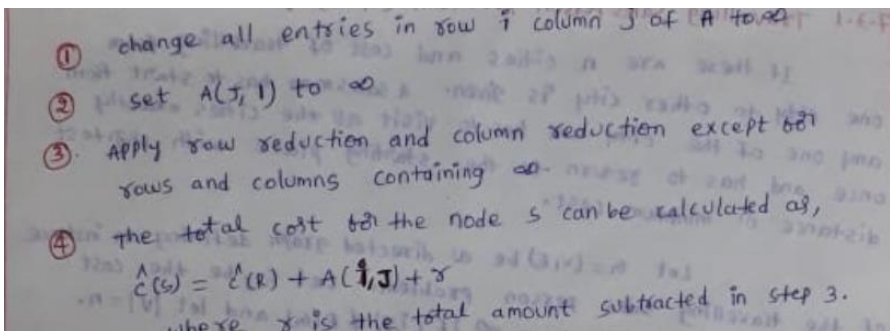 ① change all entries in row i column J of A to ∞
② set A(J, 1) to ∞
③. Apply row reduction and column reduction except for
rows and columns containing ∞.
④ The total cost for the node s can be calculated as,
ĉ(s) = ĉ(R) + A(i,J) + r
where r is the total amount subtracted in step 3.